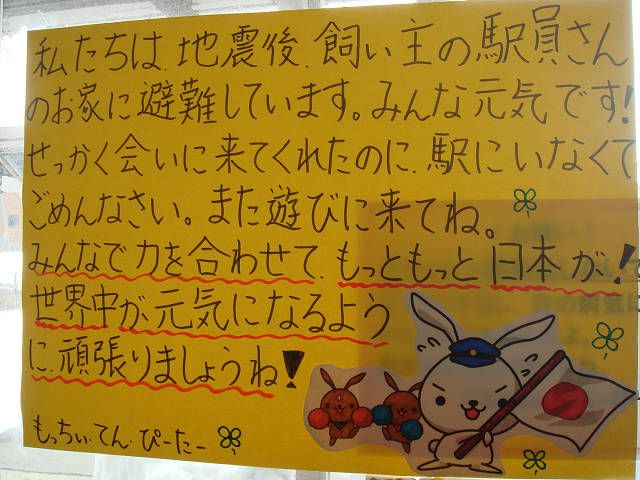 私たちは、地震後、飼い主の駅員さん
のお家に避難しています。みんな元気です!
せっかく会いに来てくれたのに、駅にいなくて
ごめんなさい。また遊びに来てね。
みんなで力を合わせて、もっともっと日本が!
世界中が元気になるよう
に、頑張りましょうね!
もっちぃ・てん・ぴーたー